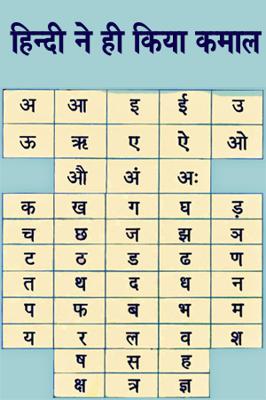 हिन्दी ने ही किया कमाल
अ आ इ ई उ
ऊ ऋ ए ऐ ओ
औ अं अः
क ख ग घ ड़
च छ ज झ ञ
ट ठ ड ढ ण
त थ द ध न
प फ ब भ म
य र ल व श
ष स ह
क्ष त्र ज्ञ